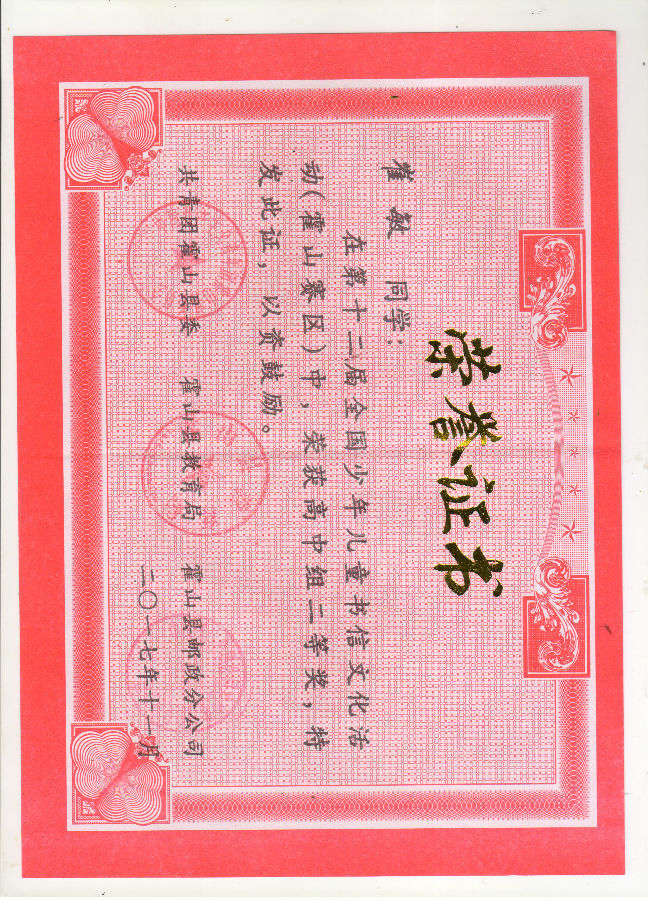 荣誉证书
崔敏 同学:
在第十二届全国少年儿童书信文化活
动(霍山赛区)中，荣获高中组二等奖，特
发此证，以资鼓励。
共青团霍山县委 霍山县教育局 霍山县邮政分公司
二〇一七年十一月